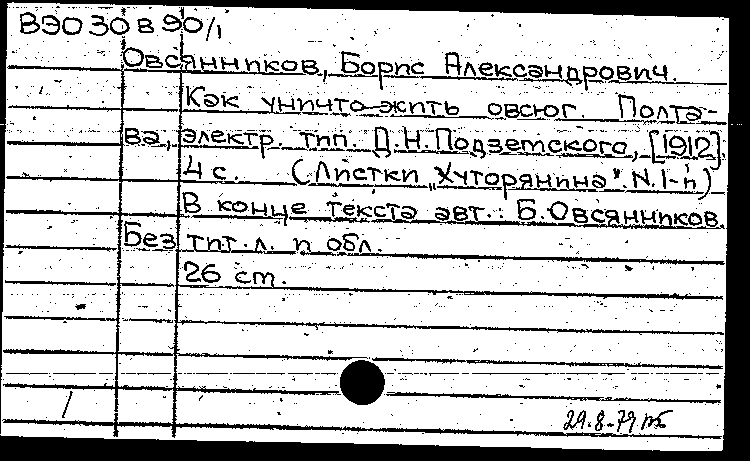 ВЭО 30 в 90/1
Овсянников, Борис Александрович.
Как уничтожить овсюг. Полта-
ва, электр. тип. Д.Н.Подземского, [1912].
4 с. (Листки „Хуторянина". N.1-й)
В конце текста авт.: Б.Овсянников.
Без тит.л. и обл.
26 ст.
/
29.8-79